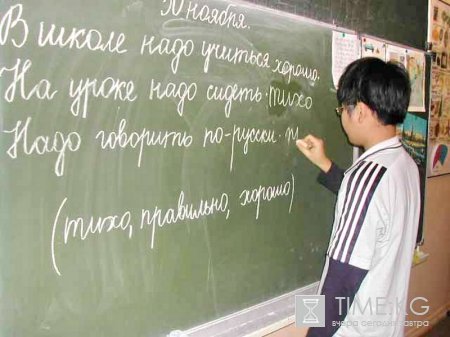 ноября.
В школе надо учиться хорошо.
На уроке надо сидеть тихо
Надо говорить по-русски
(тихо, правильно, хорошо)
TIME.KG
вчера сегодня завтра